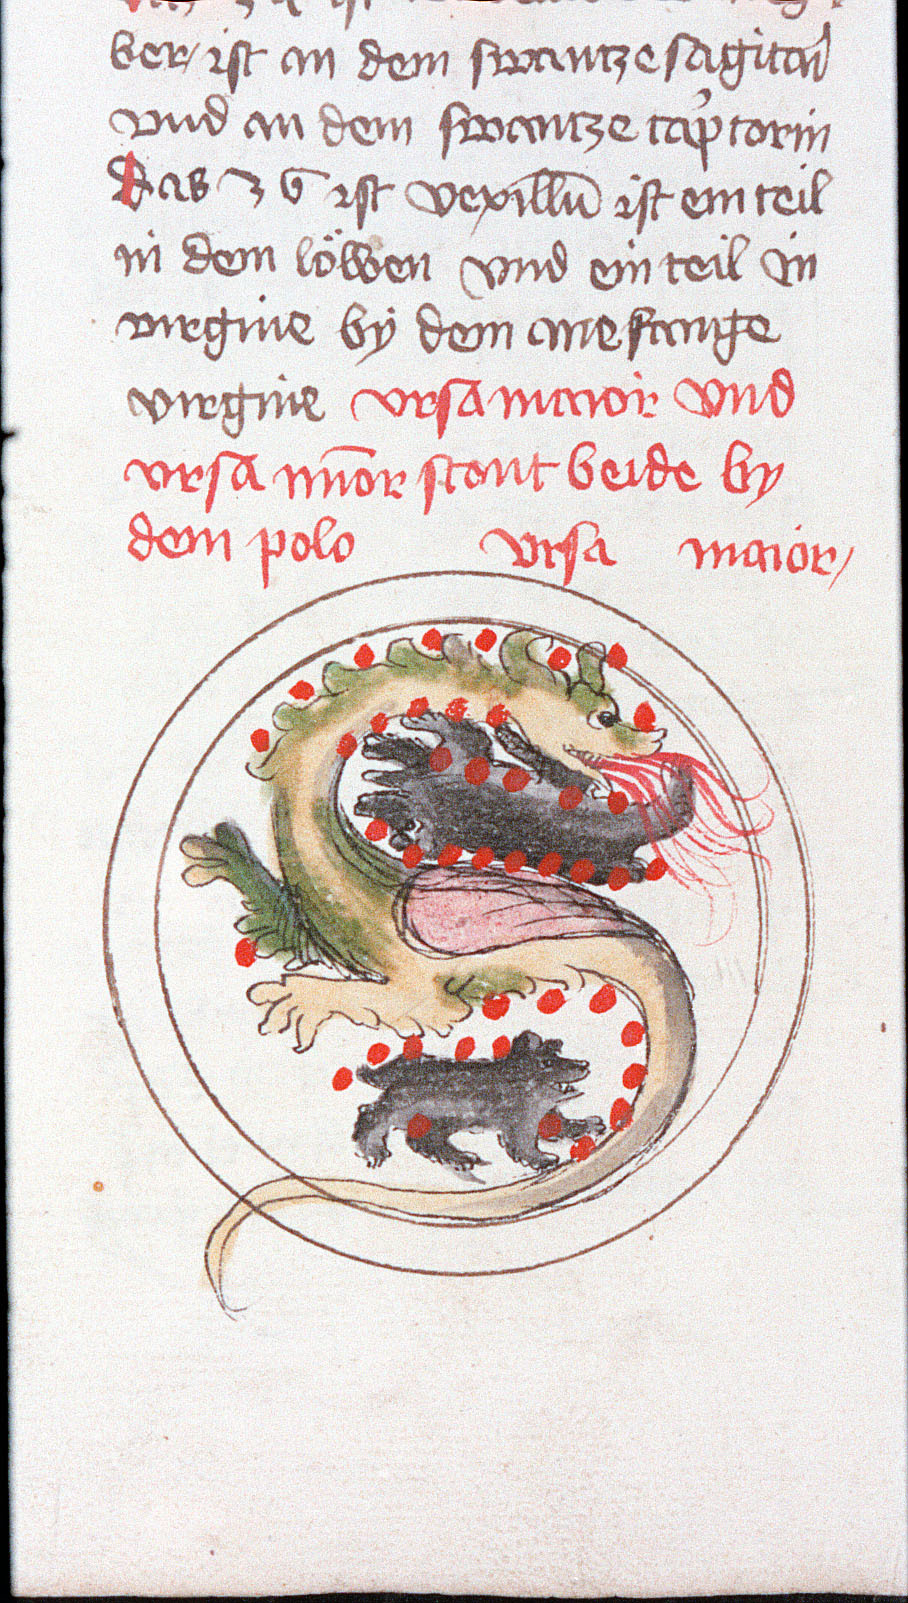 ber / ist an dem swantze sagitarÿ
vnd an dem swantze cap̉corin
Das 36 ist vexillū ist ein teil
in dem löwen vnd ein teil in
virgine bÿ dem ane fange
virgine vrsa maior vnd
vrsa mīor stont beide by
dem polo vrsa maior /